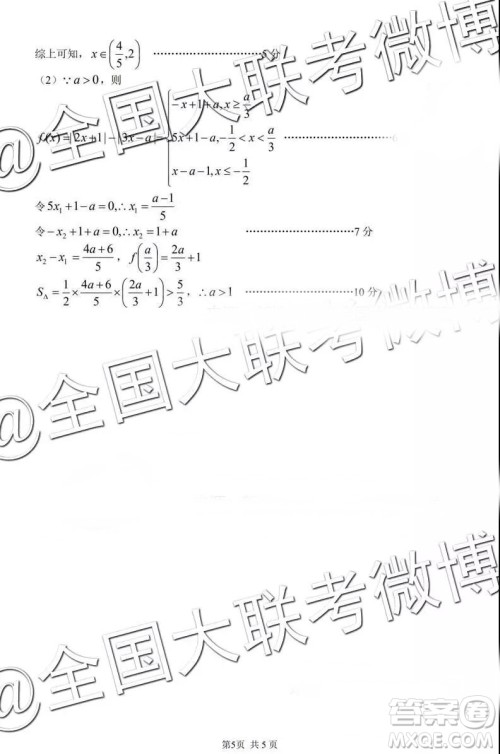 综上可知，x∈(4/5,2) ……………… 5 分
（2）∵a>0，则
f(x)=|2x+1|-|3x-a|=
-x+1+a,x≥a/3
5x+1-a,-1/2<x<a/3
x-a-1,x≤-1/2
令5x₁+1-a=0,∴x₁=(a-1)/5
令-x₂+1+a=0,∴x₂=1+a ………………7 分
x₂-x₁=(4a+6)/5，f(a/3)=2a/3+1
S_Δ=1/2×(4a+6)/5×(2a/3+1)>5/3，∴a>1 ………………10 分
@全国大联考微博
@全国大联考微博
@全国大联考微博
第5页 共5页
答案圈
MXQE.COM